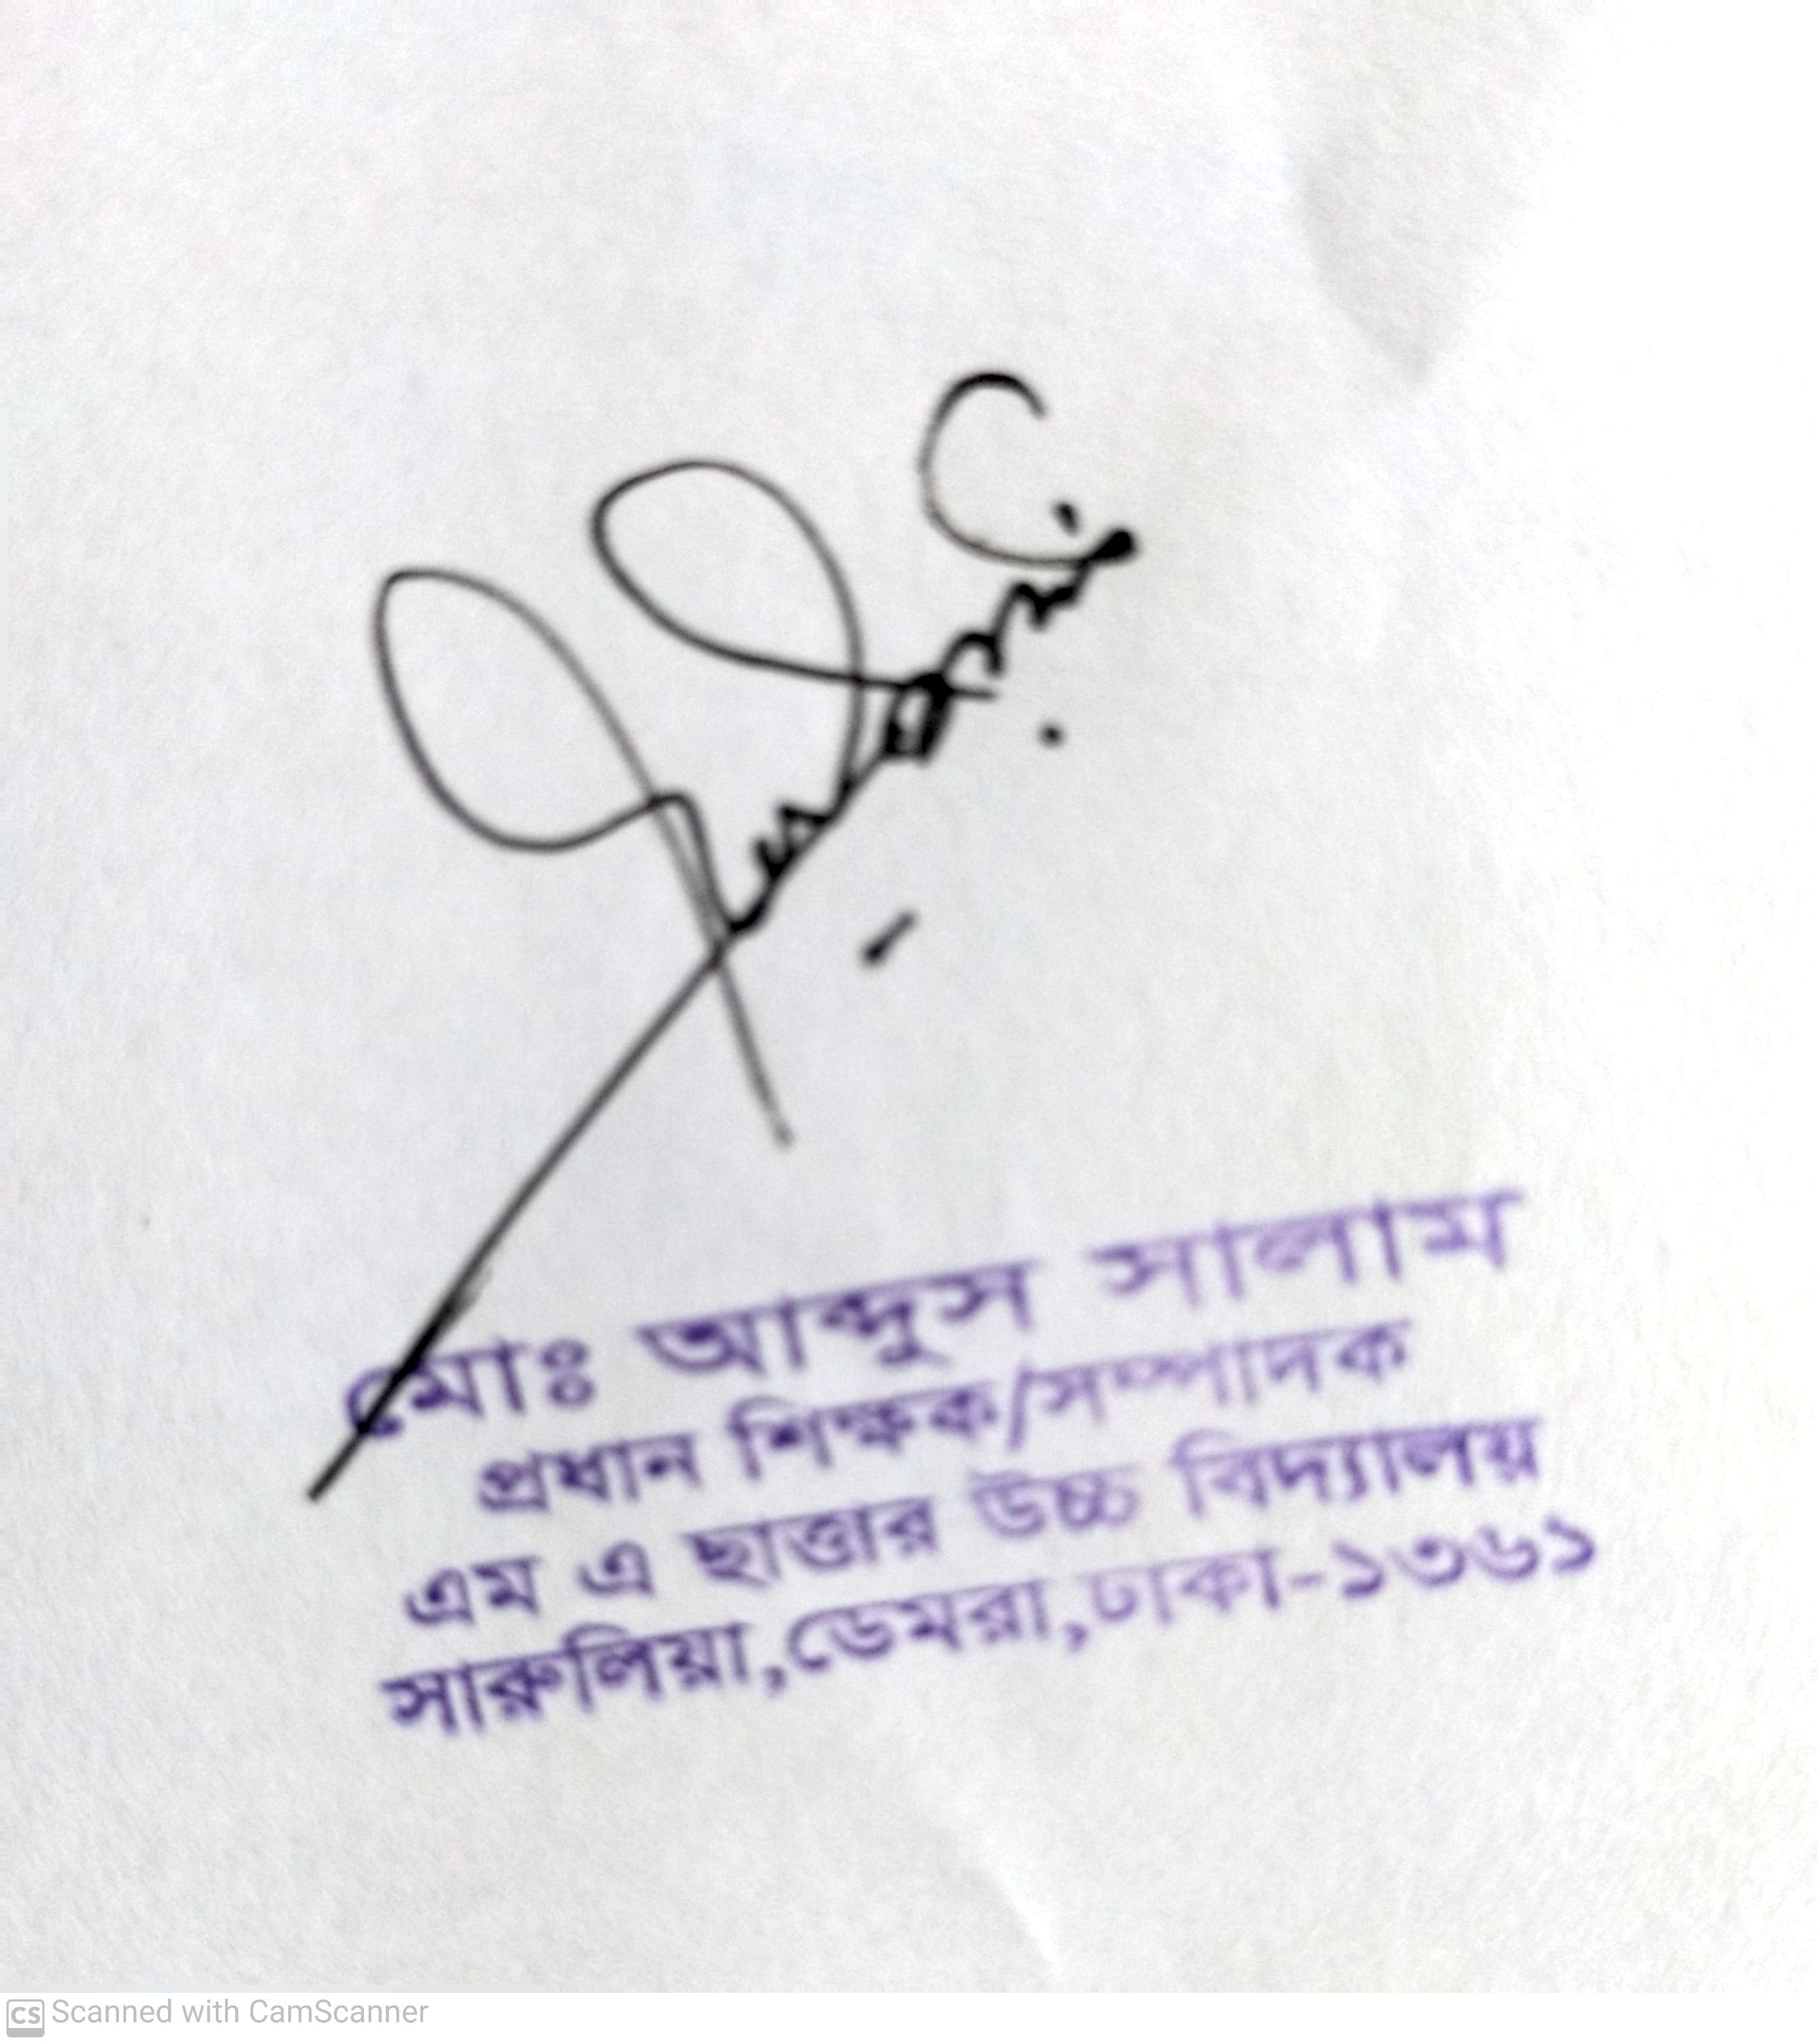 মোঃ আব্দুস সালাম
প্রধান শিক্ষক/সম্পাদক
এম এ ছাত্তার উচ্চ বিদ্যালয়
সারুলিয়া,ডেমরা,ঢাকা-১৩৬১
CS Scanned with CamScanner